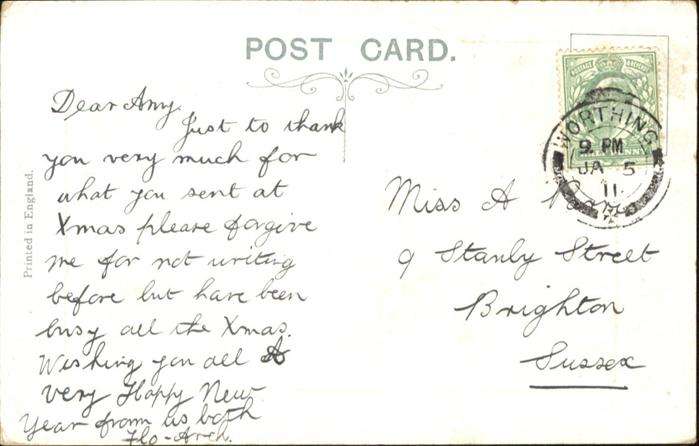 POST CARD.
Printed in England.
Dear Amy.
Just to thank
you very much for
what you sent at
Xmas please forgive
me for not writing
before but have been
busy all the Xmas.
Wishing you all A
very Happy New
Year from us both
Flo-Arch.
WORTHING
9. PM
JA 5
11
Miss A
9 Stanly Street
Brighton
Sussex